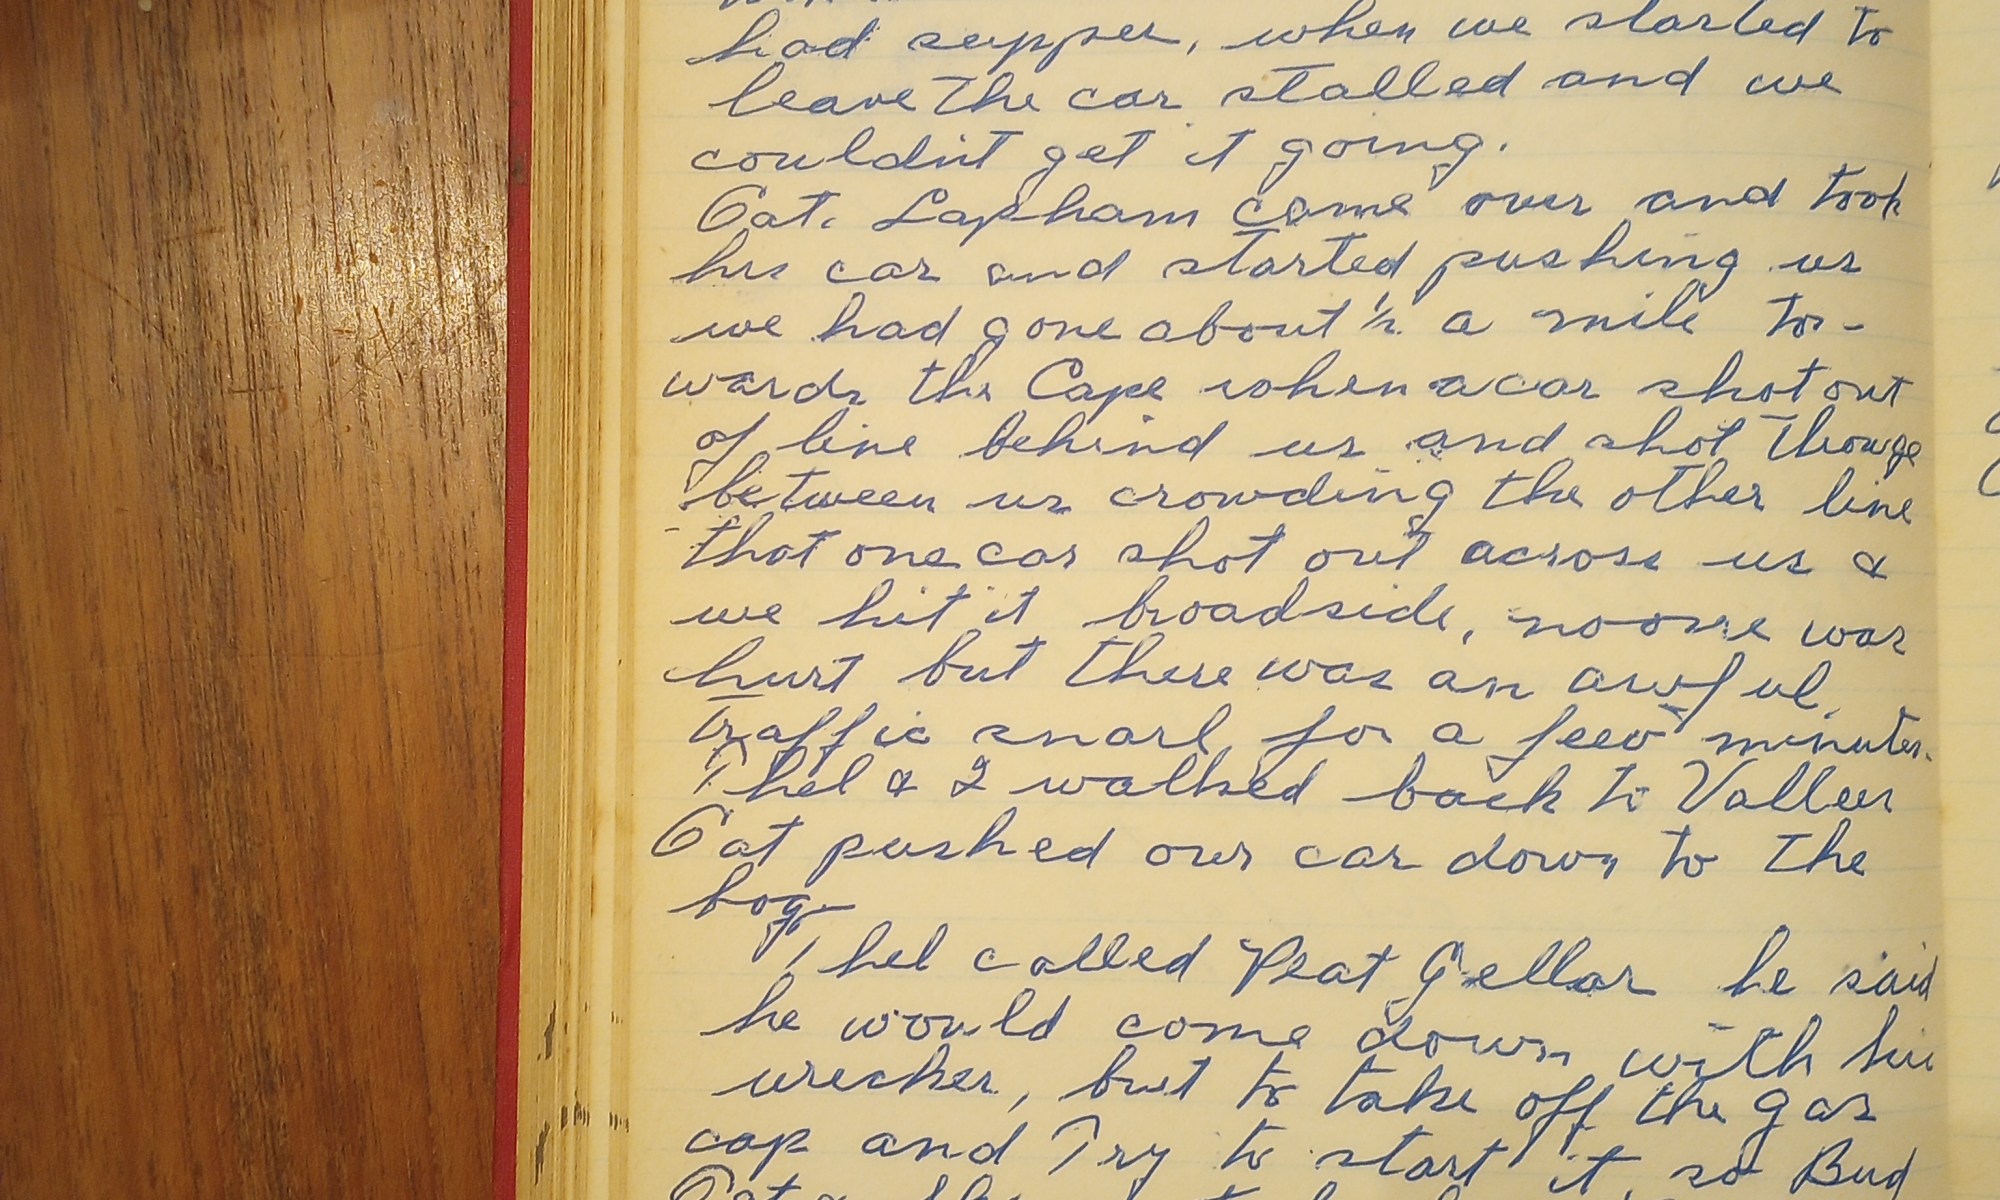 had supper, when we started to
leave the car stalled and we
couldn't get it going.
Pat. Lapham came over and took
his car and started pushing us
we had gone about 1/2 a mile to-
wards the Cape when a car shot out
of line behind us and shot through
between us crowding the other line
that one car shot out across us &
we hit it broadside, no one was
hurt but there was an awful
traffic snarl for a few minutes.
Thel & I walked back to Vallees
Pat pushed our car down to the
bog,
Thel called Peat Gellar he said
he would come down with his
wrecker, but to take off the gas
cap and Try to start it, so Bud